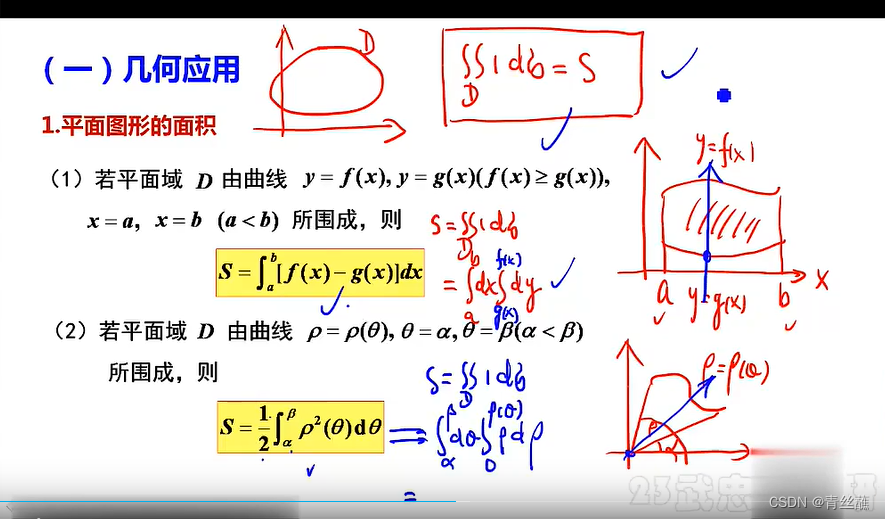 (一)几何应用
D
∬1dσ = S
D
1.平面图形的面积
(1)若平面域 D 由曲线 y = f(x), y = g(x)(f(x) ≥ g(x)),
x = a, x = b (a < b) 所围成,则
S = ∫ₐᵇ[f(x) − g(x)]dx
S = ∬1dσ
D
= ∫ₐᵇdx∫dy
f(x)
g(x)
y=f(x)
a
y=g(x)
b
x
(2)若平面域 D 由曲线 ρ = ρ(θ), θ = α, θ = β(α < β)
所围成,则
S = 1/2 ∫_α^β ρ²(θ)dθ
S = ∬1dσ
D
= ∫_α^β dθ∫_0^ρ(θ) ρdρ
=
ρ=ρ(θ)
β
α
CSDN @青丝醮